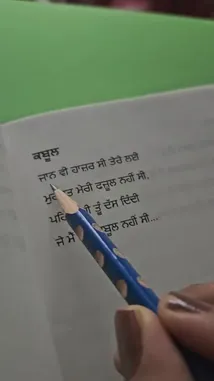 ਕਬੂਲ
ਜਾਨ ਵੀ ਹਾਜ਼ਰ ਸੀ ਤੇਰੇ ਲਈ
ਮੇਰੀ ਫਜ਼ੂਲ ਨਹੀਂ ਸੀ,
ਤੂੰ ਦੱਸ ਦਿੰਦੀ
ਜੇ ਨਹੀਂ ਸੀ...